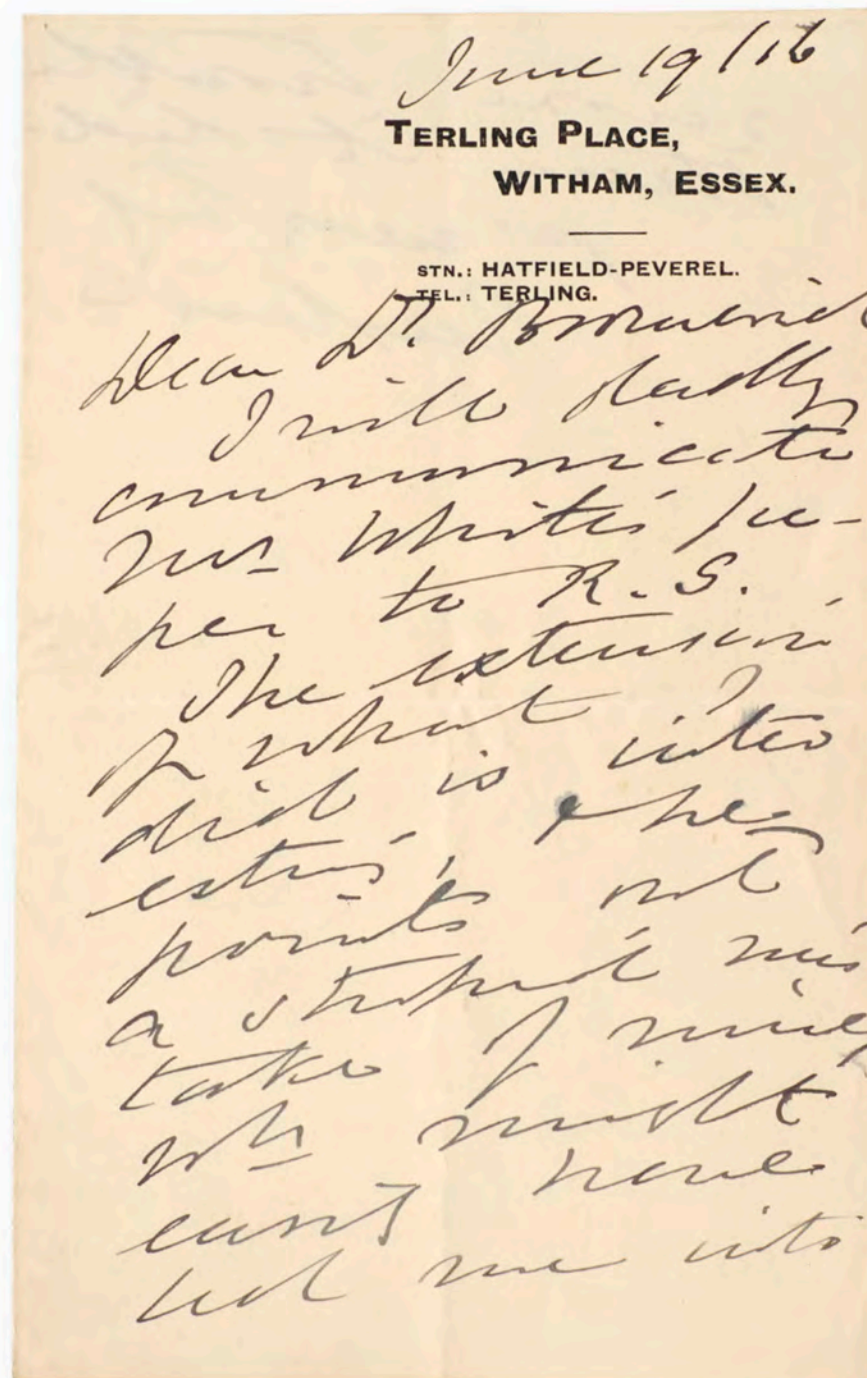 June 19/16
TERLING PLACE,
WITHAM, ESSEX.
STN.: HATFIELD-PEVEREL.
TEL.: TERLING.
Dear Dr. Bromwich
I will gladly
communicate
White's pa-
per to R. S.
The extension
of what I
did is inter
esting, & he
points out
a stupid mis
take of mine,
wh might
easily have
led me into